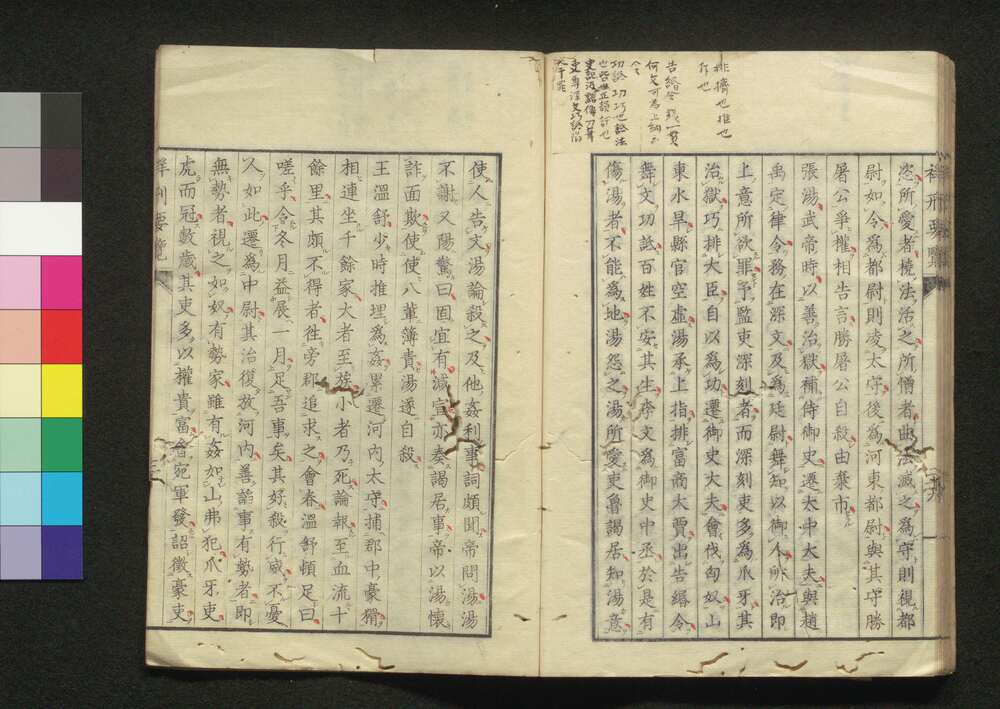 排擠也推也
斥也
告緡令錢一貫
恣所愛者撓法活之所憎者曲法滅之為守則視都
尉如令為都尉則凌太守後為河東都尉與其守勝
屠公爭權相告言勝屠公自殺由棄市
張湯武帝時以善治獄補侍御史遷太中大夫與趙
禹定律令務在深文及為廷尉舞知以御人所治即
上意所欲罪予監吏深刻者而深刻吏多為爪牙其
治獄巧排大臣自以為功遷御史大夫會伐匈奴山
東水旱縣官空虛湯承上指排富商大賈出告緡令
舞文巧詆百姓不安其生李文為御史中丞於是有
傷湯者不能為地湯怨之湯所愛吏魯謁居知湯意
使人告文湯論殺之及他姦利事詞頗聞帝問湯湯
不謝又陽驚曰固宜有減宣亦奏謁居事帝以湯懷
詐面欺使使八輩簿責湯遂自殺
王溫舒少時推埋為姦累遷河內太守捕郡中豪猾
相連坐千餘家大者至族小者乃死論報至血流十
餘里其頗不得者往旁郡追求之會春溫舒頓足曰
嗟乎令冬月益展一月足吾事矣其好殺行威不憂
人如此遷為中尉其治復放河內善諂事有勢者即
無勢者視之如奴有勢家雖有姦如山弗犯爪牙吏
虎而冠數歲其吏多以權貴富會宛軍發詔徵豪吏